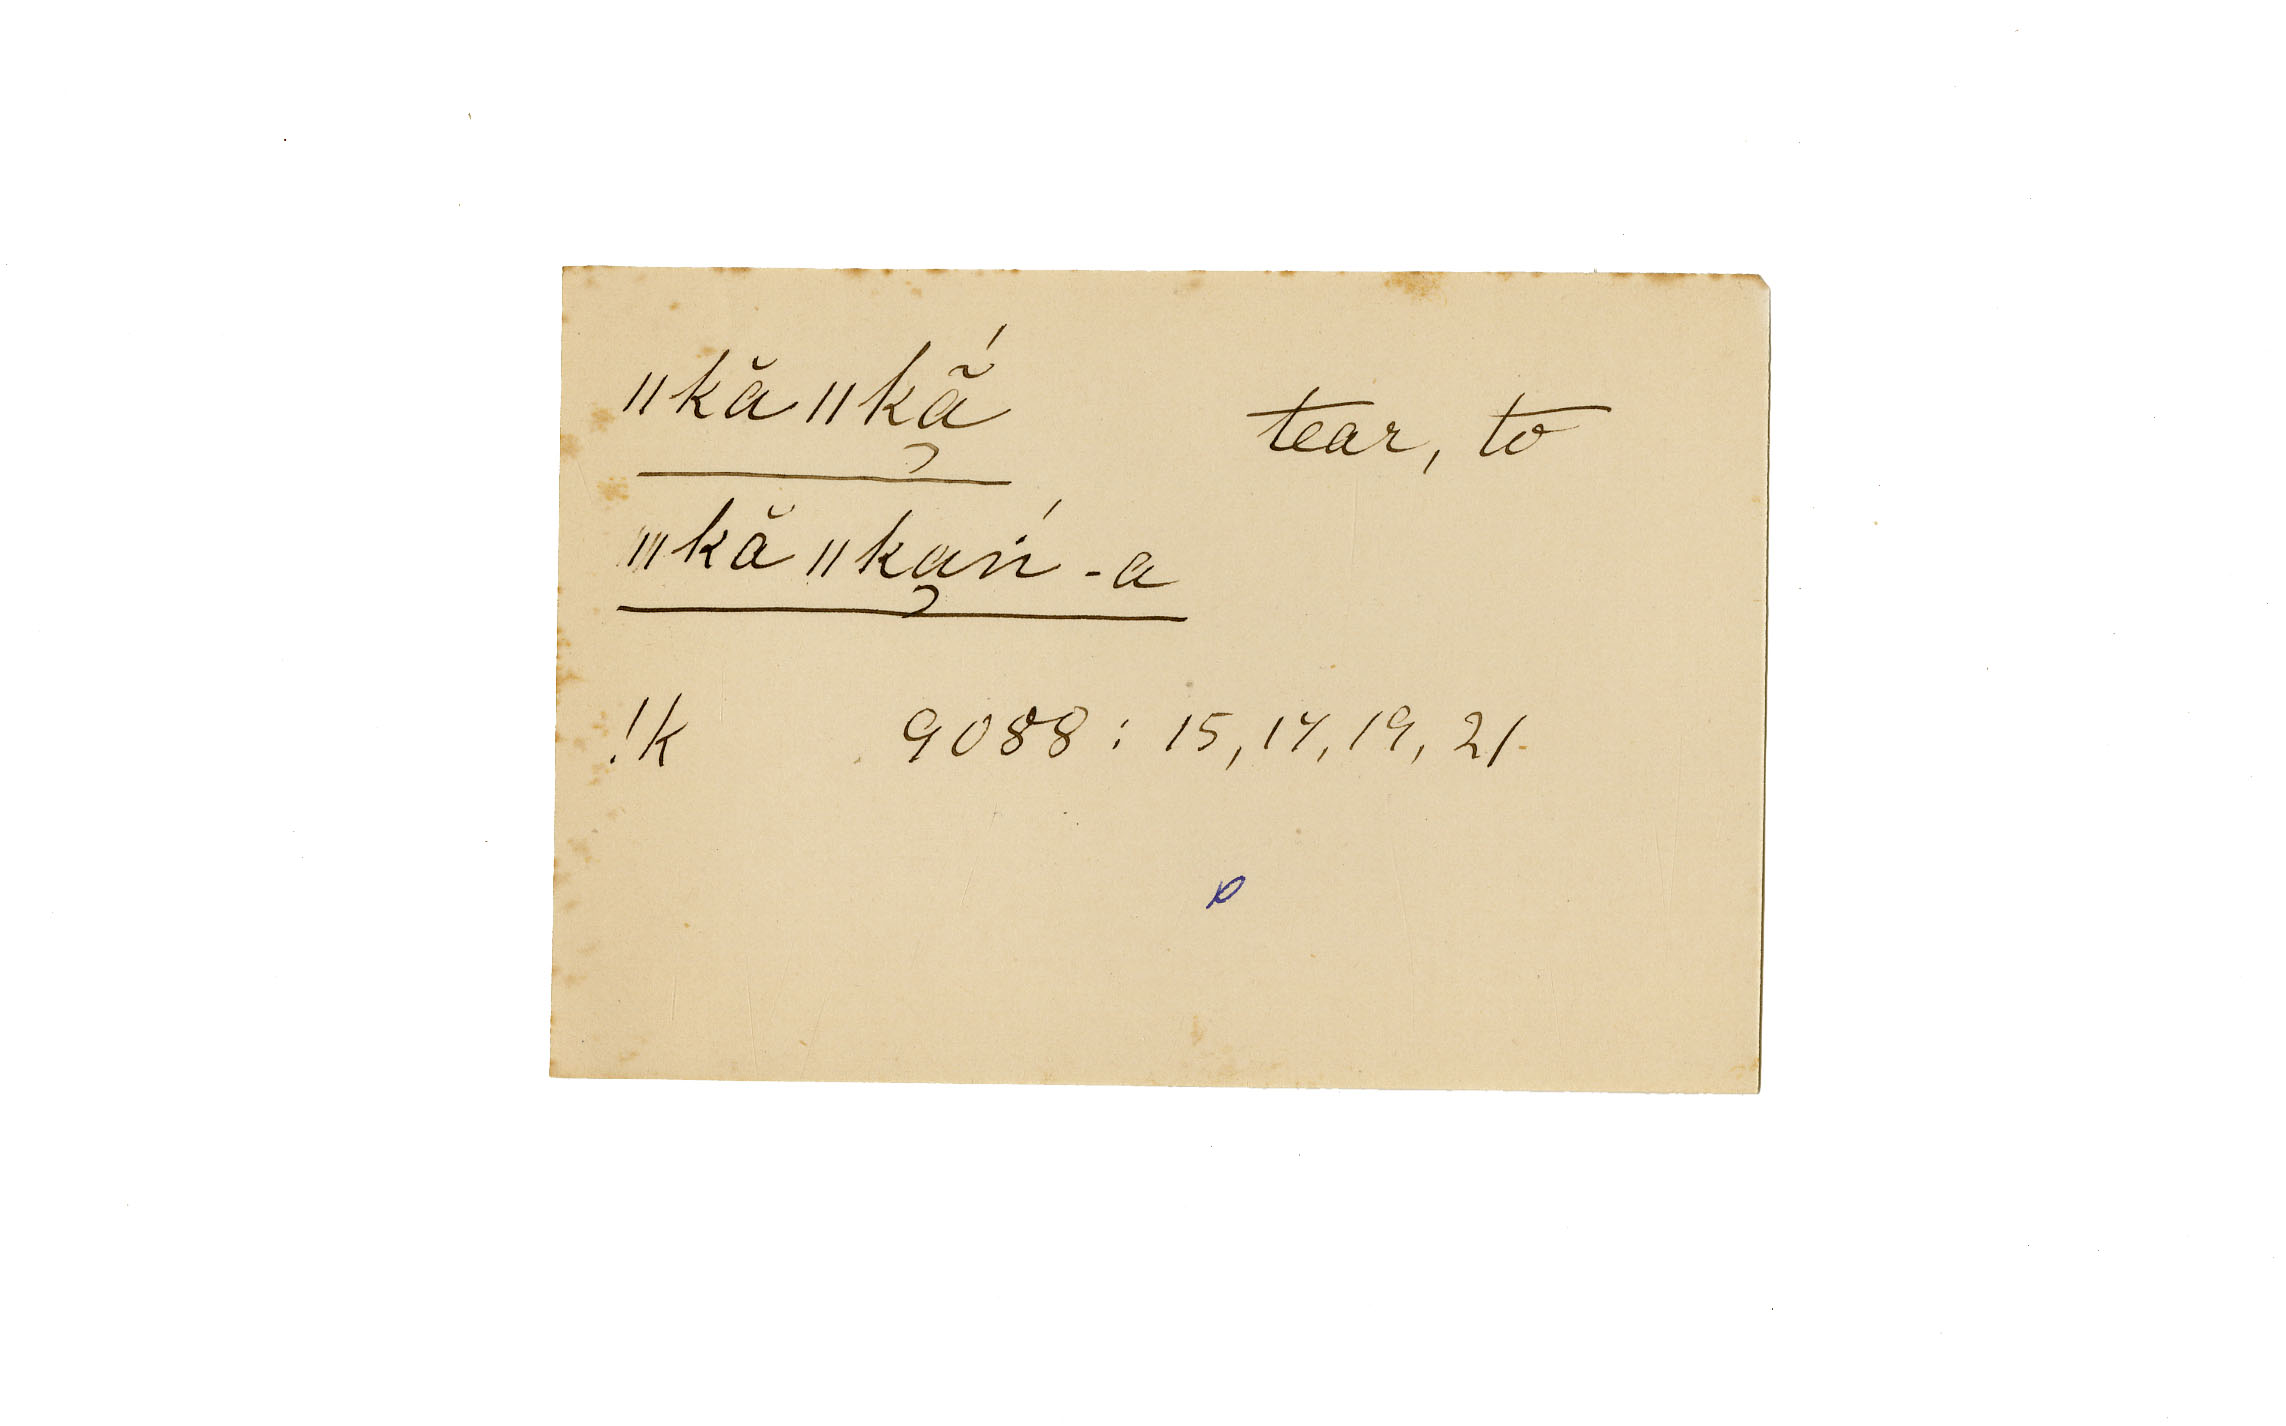 ǁkă ǁkã̆́ tear, to
ǁkă ǁkaṅ́ -a
!k 9088 : 15, 17, 19, 21.